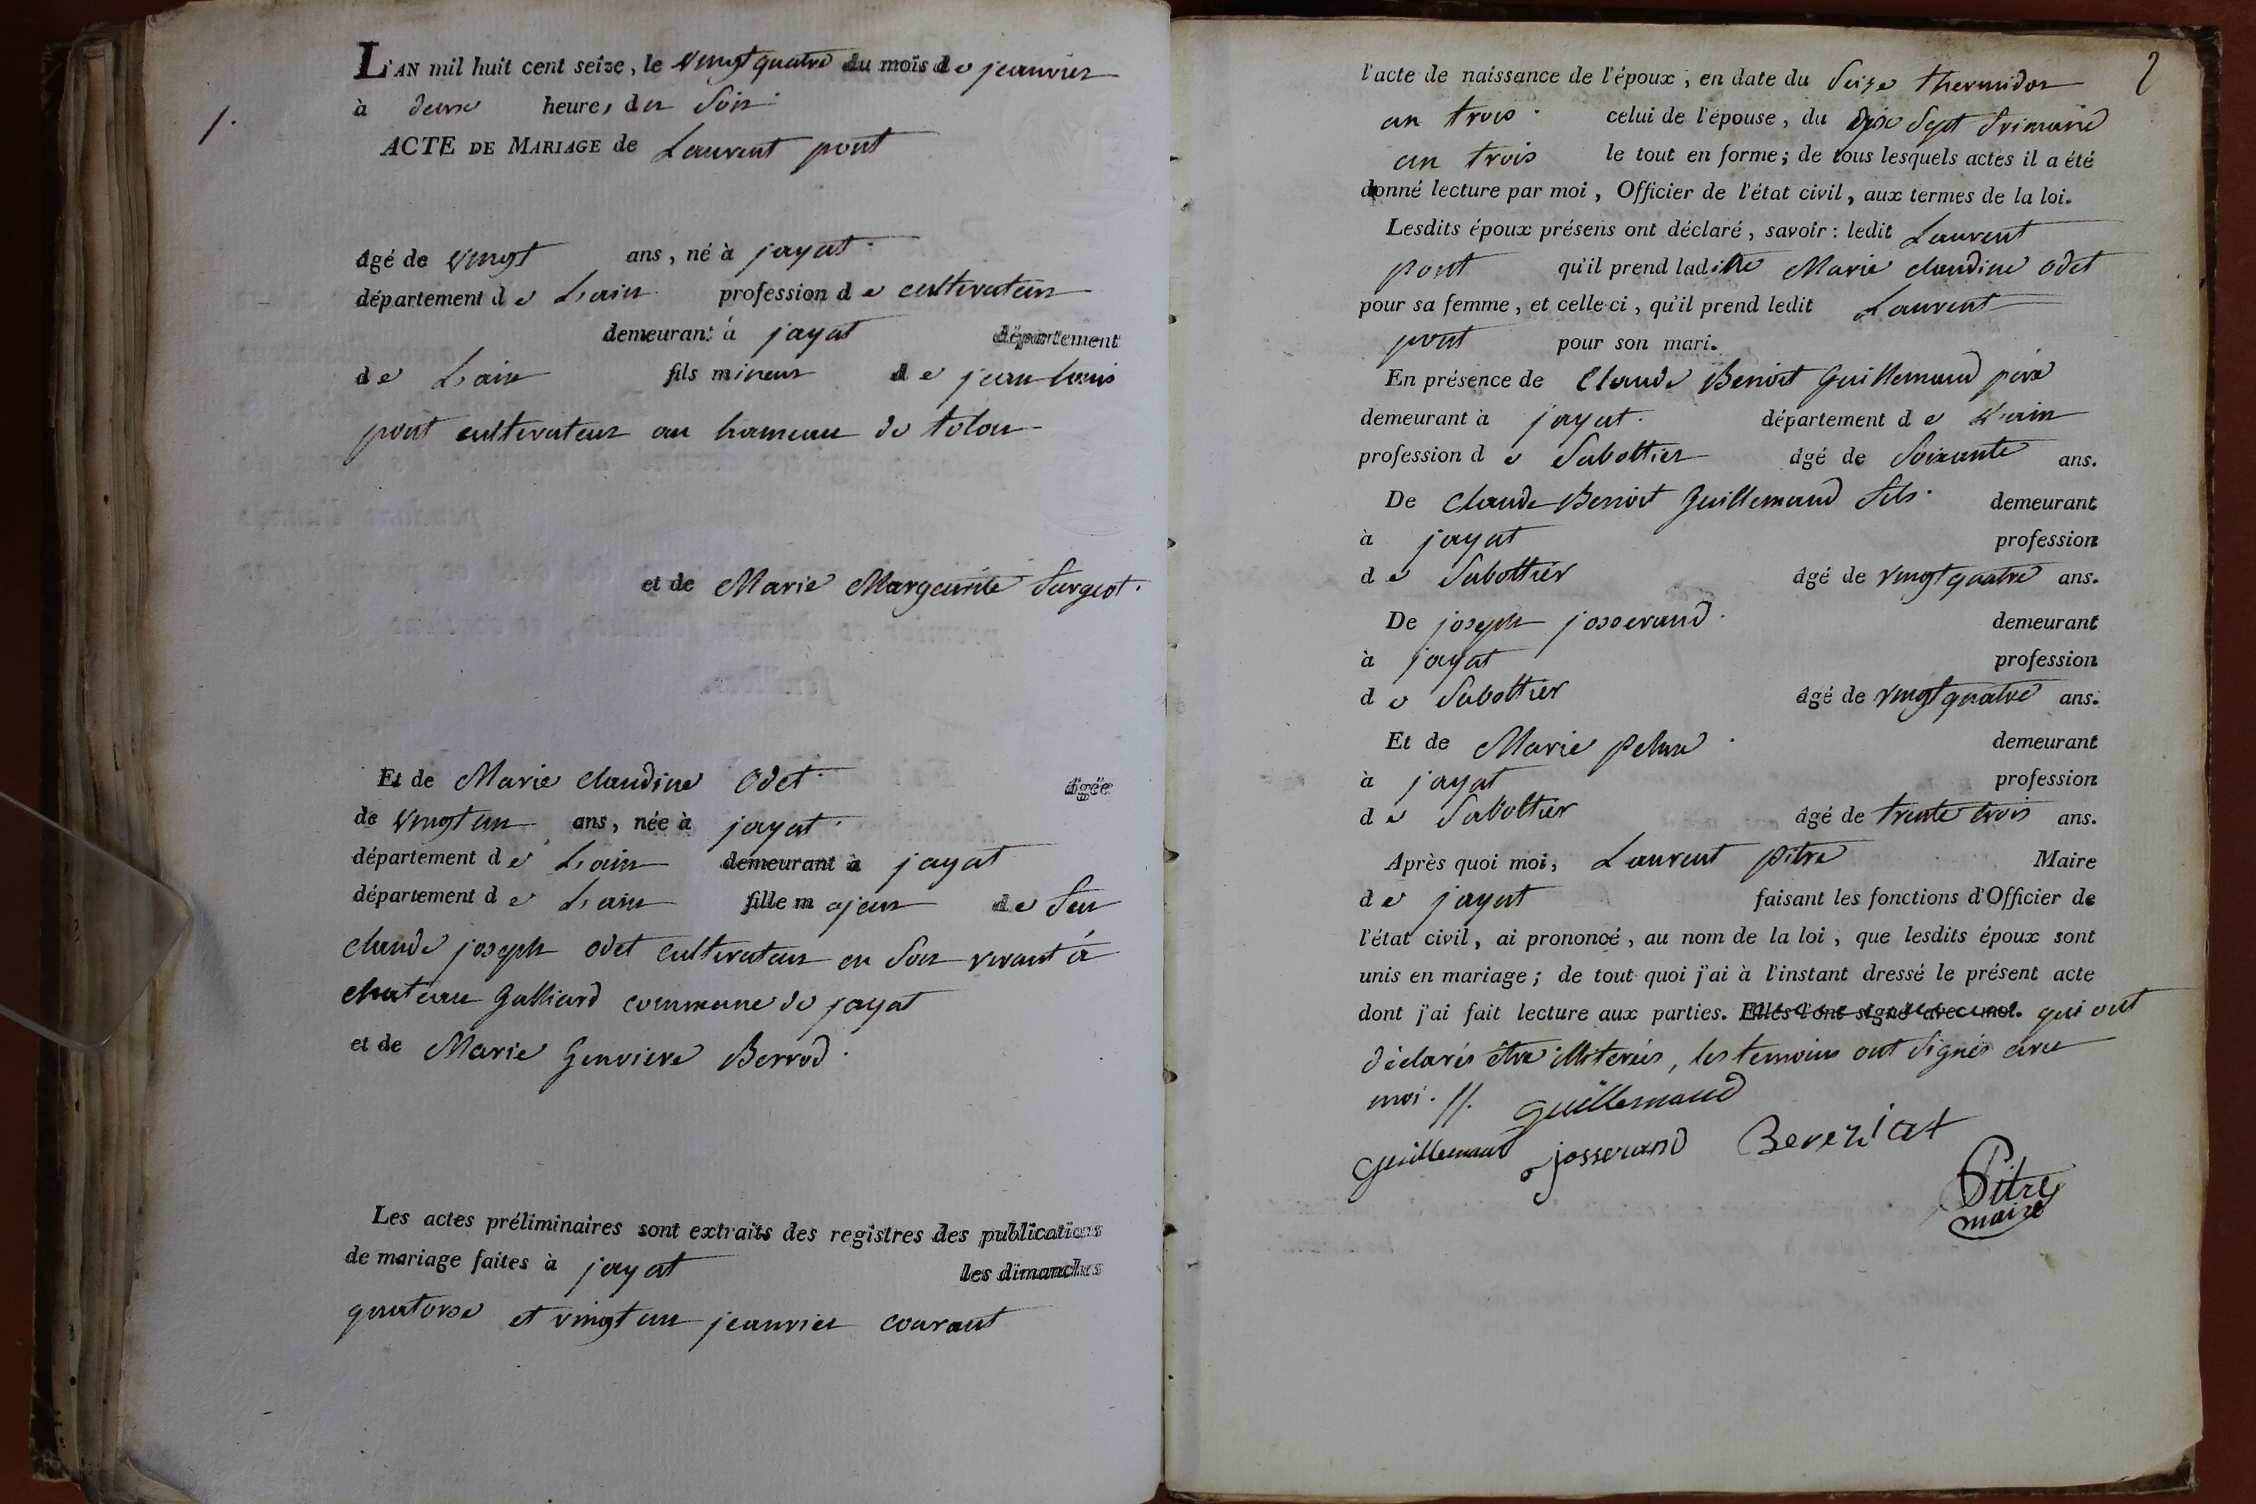 L'AN mil huit cent seize, le vingt quatre du mois de jeanvier
1.
à deux heures du soir.
ACTE DE MARIAGE de Laurent pont
âgé de vingt ans, né à jayat.
département de Lain profession de cultivateur
demeurant à jayat département
de Lain fils mineur de jean louis
pont cultivateur au hameau de tolou
et de Marie Margueritte Surgeot.
Et de Marie Claudine Odet âgée
de vingt un ans, née à jayat.
département de Lain demeurant à jayat
département de Lain fille majeur de feu
claude joseph odet cultivateur en son vivant à
chateau Galliard commune de jayat
et de Marie Genviere Berrod.
Les actes préliminaires sont extraits des registres des publications
de mariage faites à jayat les dimanches
quatorze et vingt un jeanvier courant
2
l'acte de naissance de l'époux, en date du seize thermidor
an trois. celui de l'épouse, du dix sept frimaire
an trois le tout en forme; de tous lesquels actes il a été
donné lecture par moi, Officier de l'état civil, aux termes de la loi.
Lesdits époux présens ont déclaré, savoir: ledit Laurent
pont qu'il prend laditte Marie claudine odet
pour sa femme, et celle-ci, qu'il prend ledit Laurent
pont pour son mari.
En présence de Claude Benoit Guillemaud père
demeurant à jayat. département de Lain
profession de Sabottier âgé de Soixante ans.
De Claude Benoit Guillemaud fils. demeurant
à jayat profession
de Sabottier âgé de vingt quatre ans.
De joseph josserand. demeurant
à jayat profession
de Sabottier âgé de vingt quatre ans.
Et de Marie demeurant
à jayat profession
de Sabottier âgé de trente trois ans.
Après quoi moi, Laurent pitre Maire
de jayat faisant les fonctions d'Officier de
l'état civil, ai prononcé, au nom de la loi, que lesdits époux sont
unis en mariage; de tout quoi j'ai à l'instant dressé le présent acte
dont j'ai fait lecture aux parties. Elles l'ont signé avec moi. qui ont
déclarés être illiterés, les temoins ont signés avec
moi. //. Guillemaud
Guillemaud josserand Bereziat
Pitre
maire